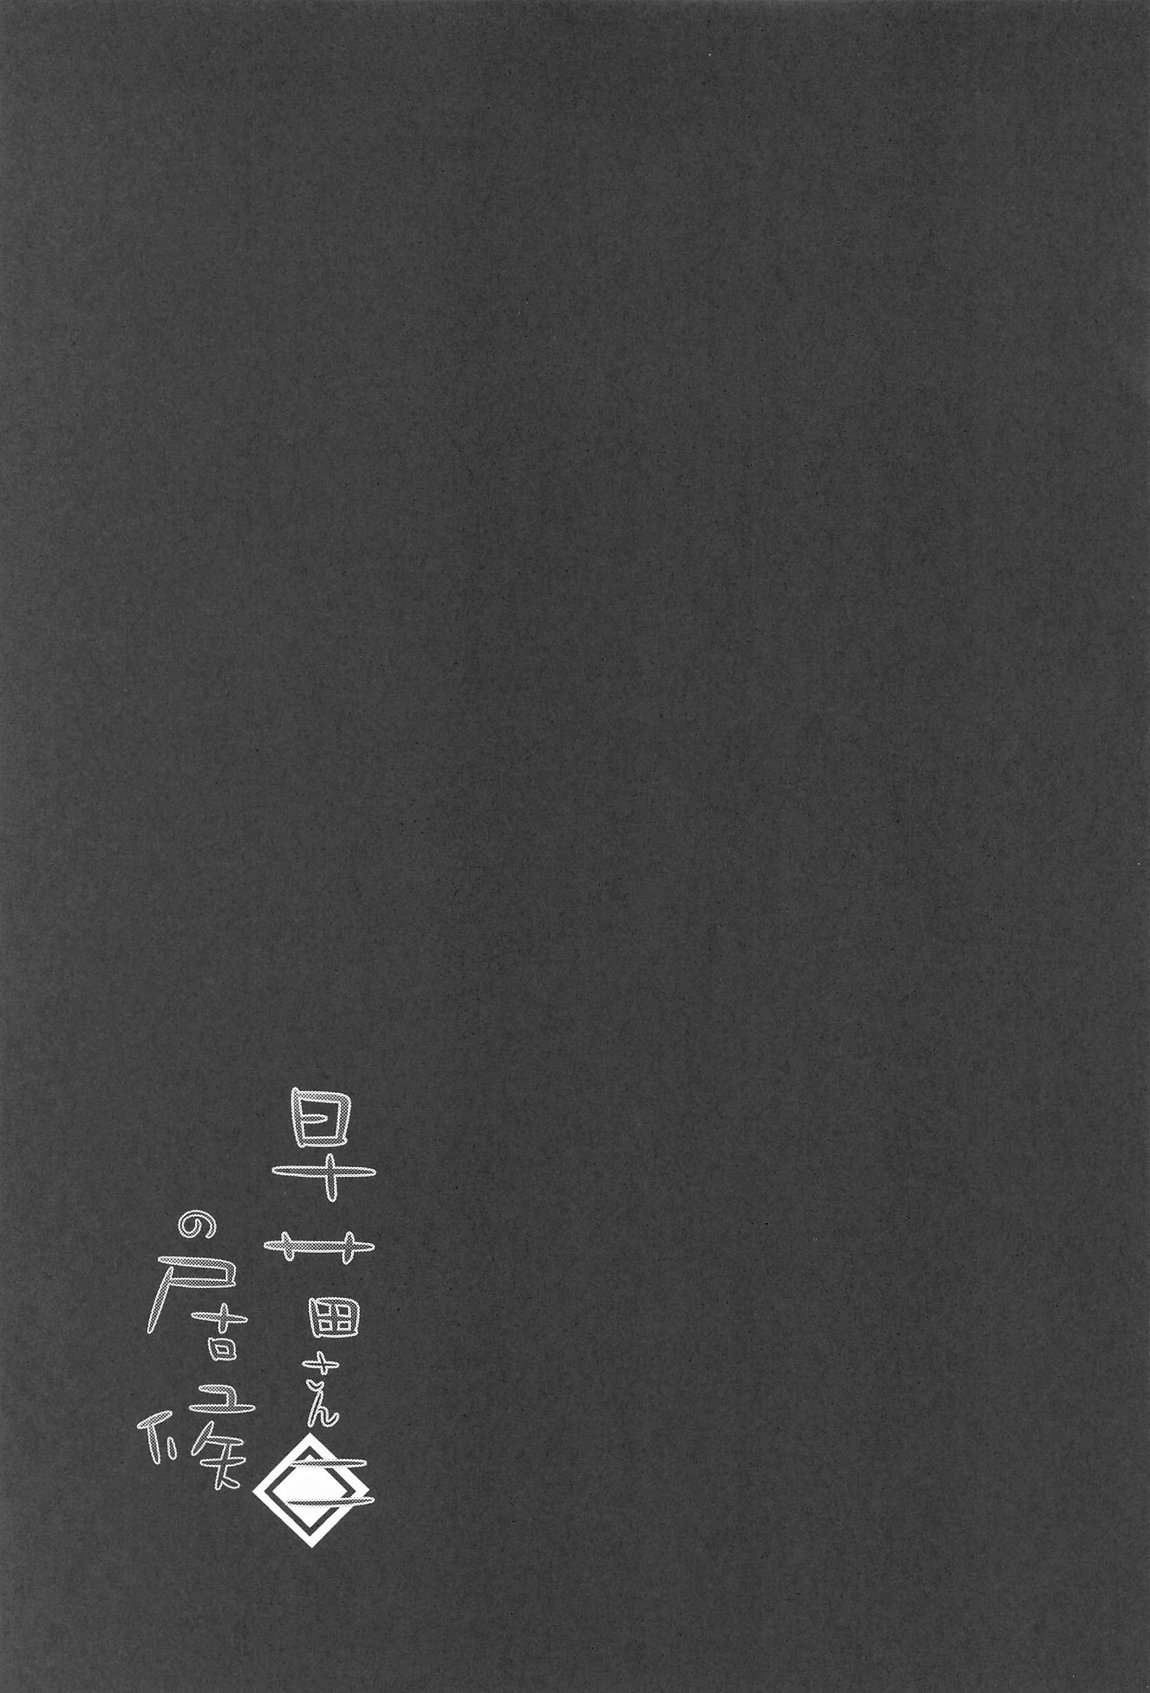 早苗さん二
の居候